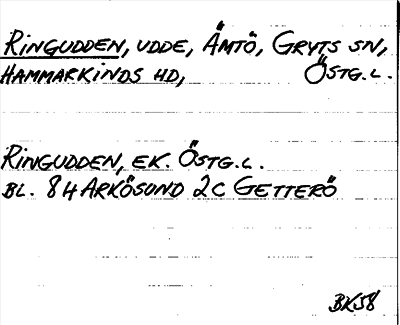 RINGUDDEN, UDDE, ÄMTÖ, GRYTS SN,
HAMMARKINDS HD, ÖSTG.L.
RINGUDDEN, EK. ÖSTG.L.
BL. 8H ARKÖSUND 2C GETTERÖ
BK58